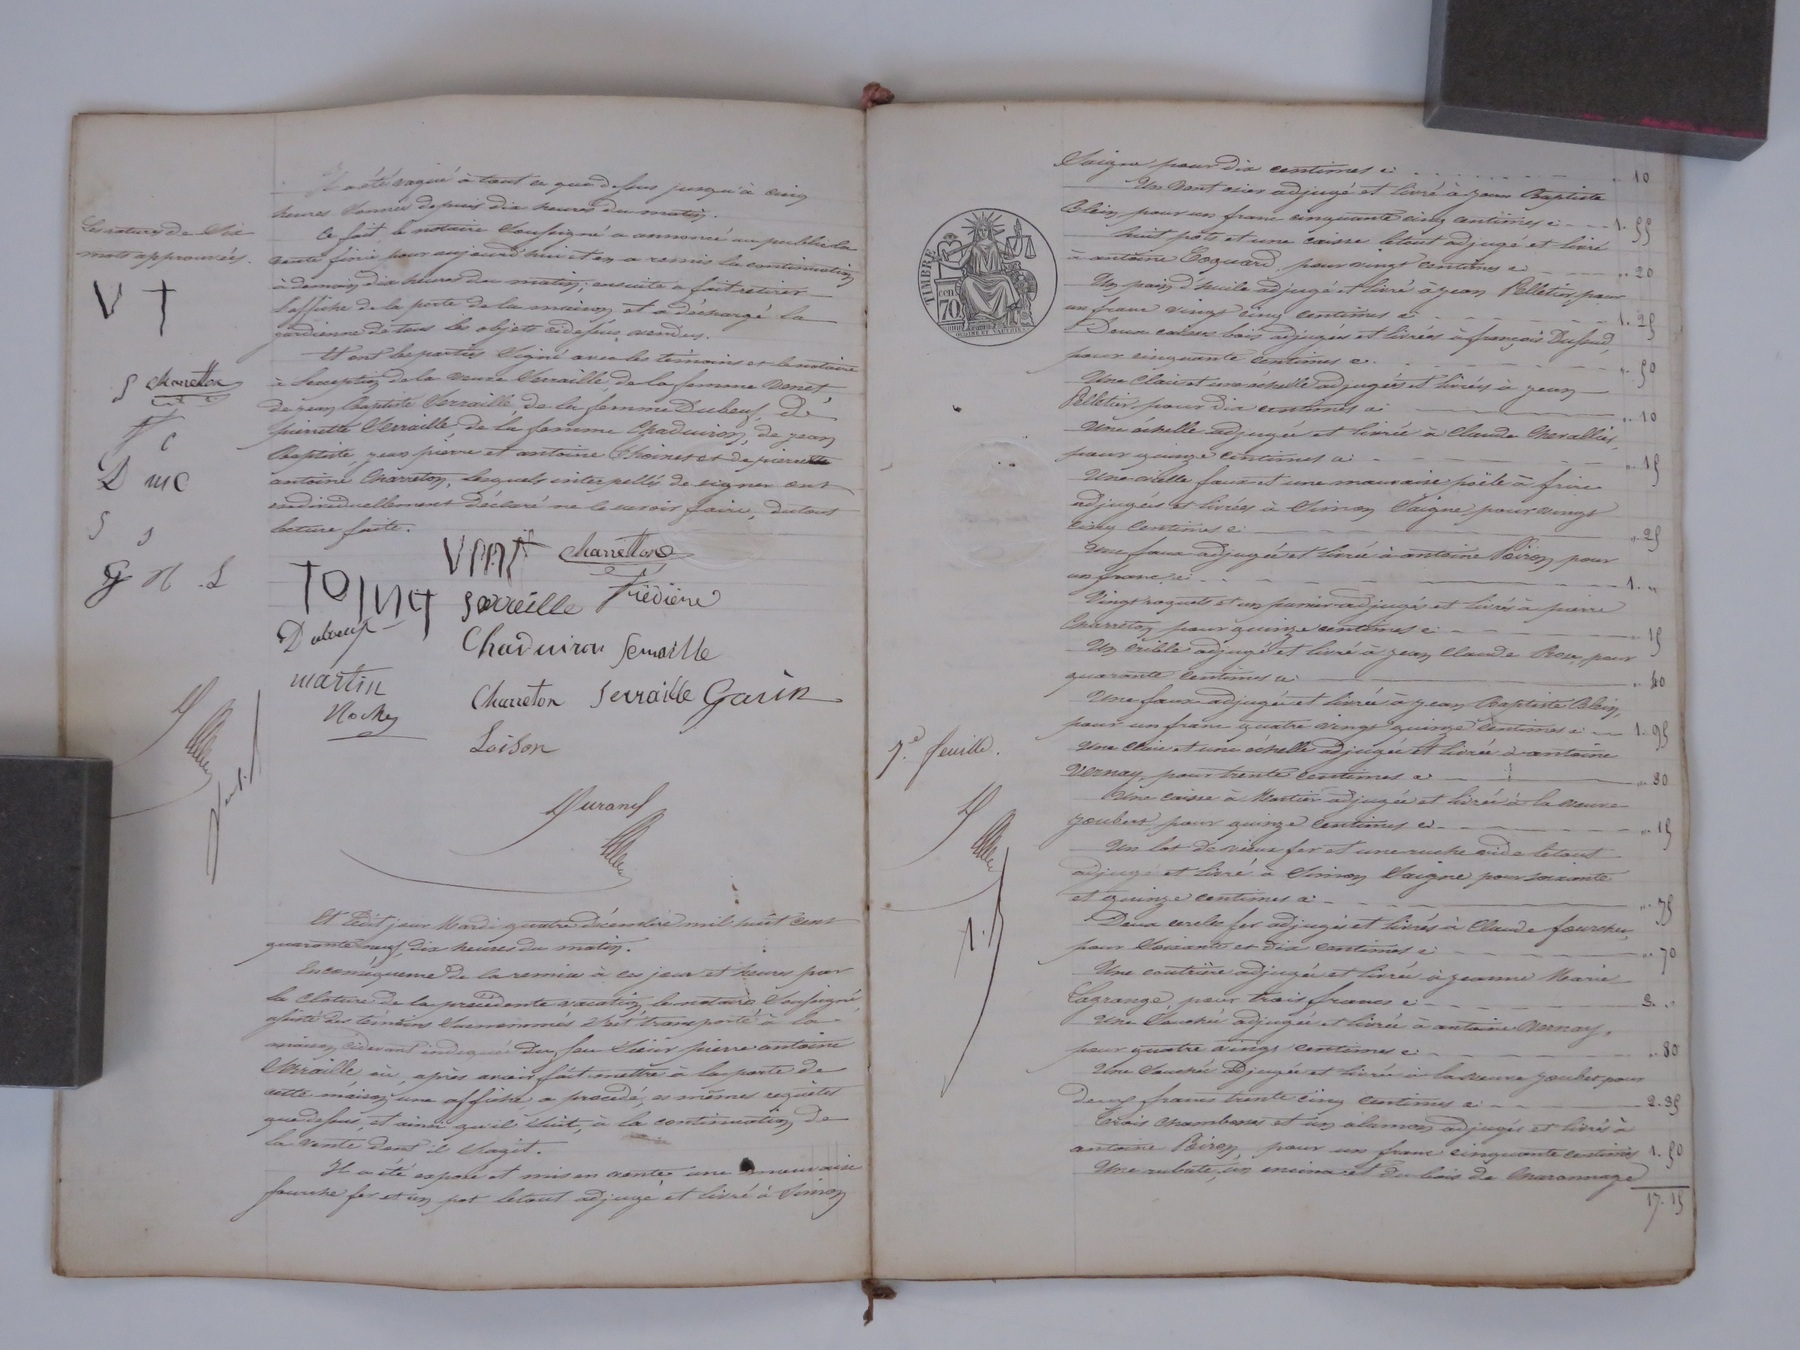 Il a été vaqué à tout ce que dessus jusqu'à cinq
heures sonnées depuis dix heures du matin.
Ce fait le notaire soussigné a annoncé au public la
vente finie pour aujourd'hui et en a remis la continuation
à demain dix heures du matin; ensuite a fait retirer
l'affiche de la porte de la maison et a déchargé la
gardienne de tous les objets cidessus vendus.
Et ont les parties signé avec les témoins et le notaire
à l'exception de la veuve Serraille, de la femme Venet
de jean Baptiste Serraille de la femme Dubeuf, de
pierrette Serraille, de la femme Chaduiron, de jean
Baptiste, jean pierre et antoine Choinet et de pierrette
antoine Charreton, lesquels interpellés de signer ont
individuellement déclaré ne le savoir faire, du tout
lecture faite.
Les ratures de dix
mots approuvées.
V T
S charretton
f c
D mc
S S
G N. L
VNNT charretton
TOINT Serreille Fredière
Dubeuf
Chaduiron Serraille
martin
Charreton Serraille Garin
Noche
Loison
Durand
Et ledit jour Mardi quatre décembre mil huit cent
quarante neuf, dix heures du matin.
En conséquence de la remise à ces jour et heures par
la cloture de la précédente vacation, le notaire soussigné,
assisté des témoins surnommés s'est transporté à la
maison cidevant indiquée du feu sieur pierre antoine
Serraille, où, après avoir fait mettre à la porte de
cette maison une affiche a procédé, es mêmes requêtes
que dessus, et ainsi qu'il suit, à la continuation de
la vente dont il s'agit.
Il a été exposé et mis en vente, une mauvaise
fourche fer et un pot le tout adjugé et livré à Simon
TIMBRE
cen
70
7.e feuille.
Saigne pour dix centimes ci " 10
Un adjugé et livré à jean Baptiste
Blein, pour un franc cinquante cinq centimes ci 1. 55
huit pots et une caisse le tout adjugé et livré
à antoine Coquard, pour vingt centimes ci " 20
Un pain d'huile adjugé et livré à jean Pelletier, pour
un franc vingt cinq centimes ci 1. 25
Deux caisses bois adjugées et livrées à françois Dufour,
pour cinquante centimes ci " 50
Une claie et une échelle adjugées et livrées à jean
Pelletier, pour dix centimes ci " 10
Une échelle adjugée et livrée à Claude Chevallier,
pour quinze centimes ci " 15
Une vieille faux et une mauvaise poële à frire
adjugées et livrées à Simon Saigne pour vingt
cinq centimes ci " 25
Une faux adjugée et livrée à antoine Peiron pour
un franc, ci 1. "
Vingt raquets et un panier adjugés et livrés à pierre
Charreton, pour quinze centimes ci " 15
Un crible adjugé et livré à jean Claude Roux, pour
quarante centimes ci " 40
Une faux adjugée et livrée à jean Baptiste Blein,
pour un franc quatre vingt quinze centimes ci 1. 95
Une claie et une échelle adjugée et livrée à antoine
Vernay, pour trente centimes ci " 30
Une caisse à Mortier adjugée et livrée à la veuve
joubert, pour quinze centimes ci " 15
Un lot de vieux fer et une ruche vide le tout
adjugé et livré à Simon Saigne pour soixante
et quinze centimes ci " 75
Deux cercles fer adjugés et livrés à Claude
pour soixante et dix centimes ci " 70
Une adjugée et livrée à jeanne Marie
Lagrange, pour trois francs ci 3. "
Une adjugée et livrée à antoine Vernay,
pour quatre vingt centimes ci " 80
Une adjugée et livrée à la veuve joubert pour
deux francs trente cinq centimes ci 2. 35
trois et un adjugés et livrés à
antoine Peiron, pour un franc cinquante centimes 1. 50
Une et du bois de charonnage
17. 15